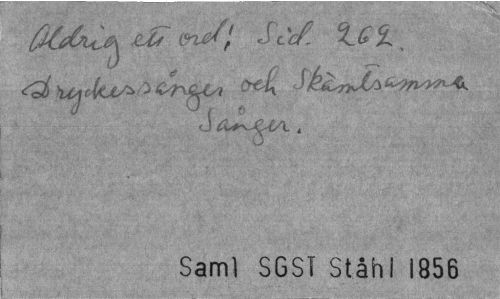 Aldrig ett ord! Sid. 262.
Dryckessånger och Skämtsamma
Sånger.
Saml SGST Ståhl 1856